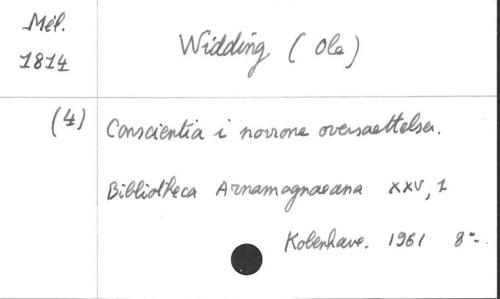 Mél.
1814
Widding (Ole)
(4)
Conscientia i norrone oversaettelser.
Bibliotheca Arnamagnaeana XXV, 1
Kobenhave. 1961 8°-.